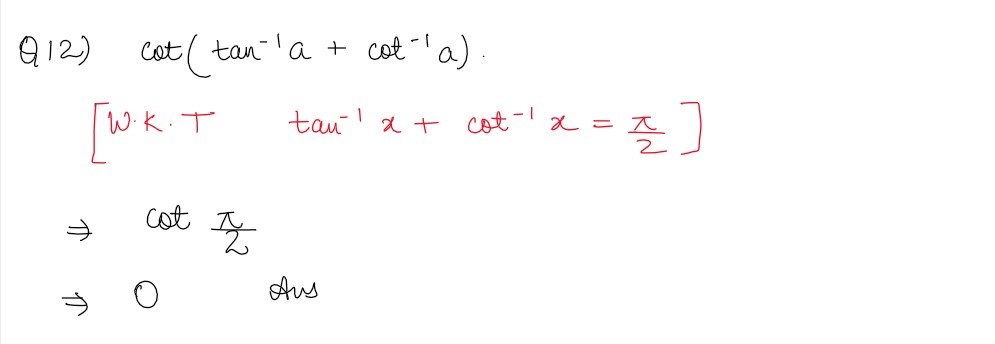 Q12) cot( tan⁻¹a + cot⁻¹a ).
[W.K.T tan⁻¹ x + cot⁻¹ x = π/2 ]
⇒ cot π/2
⇒ 0 Ans